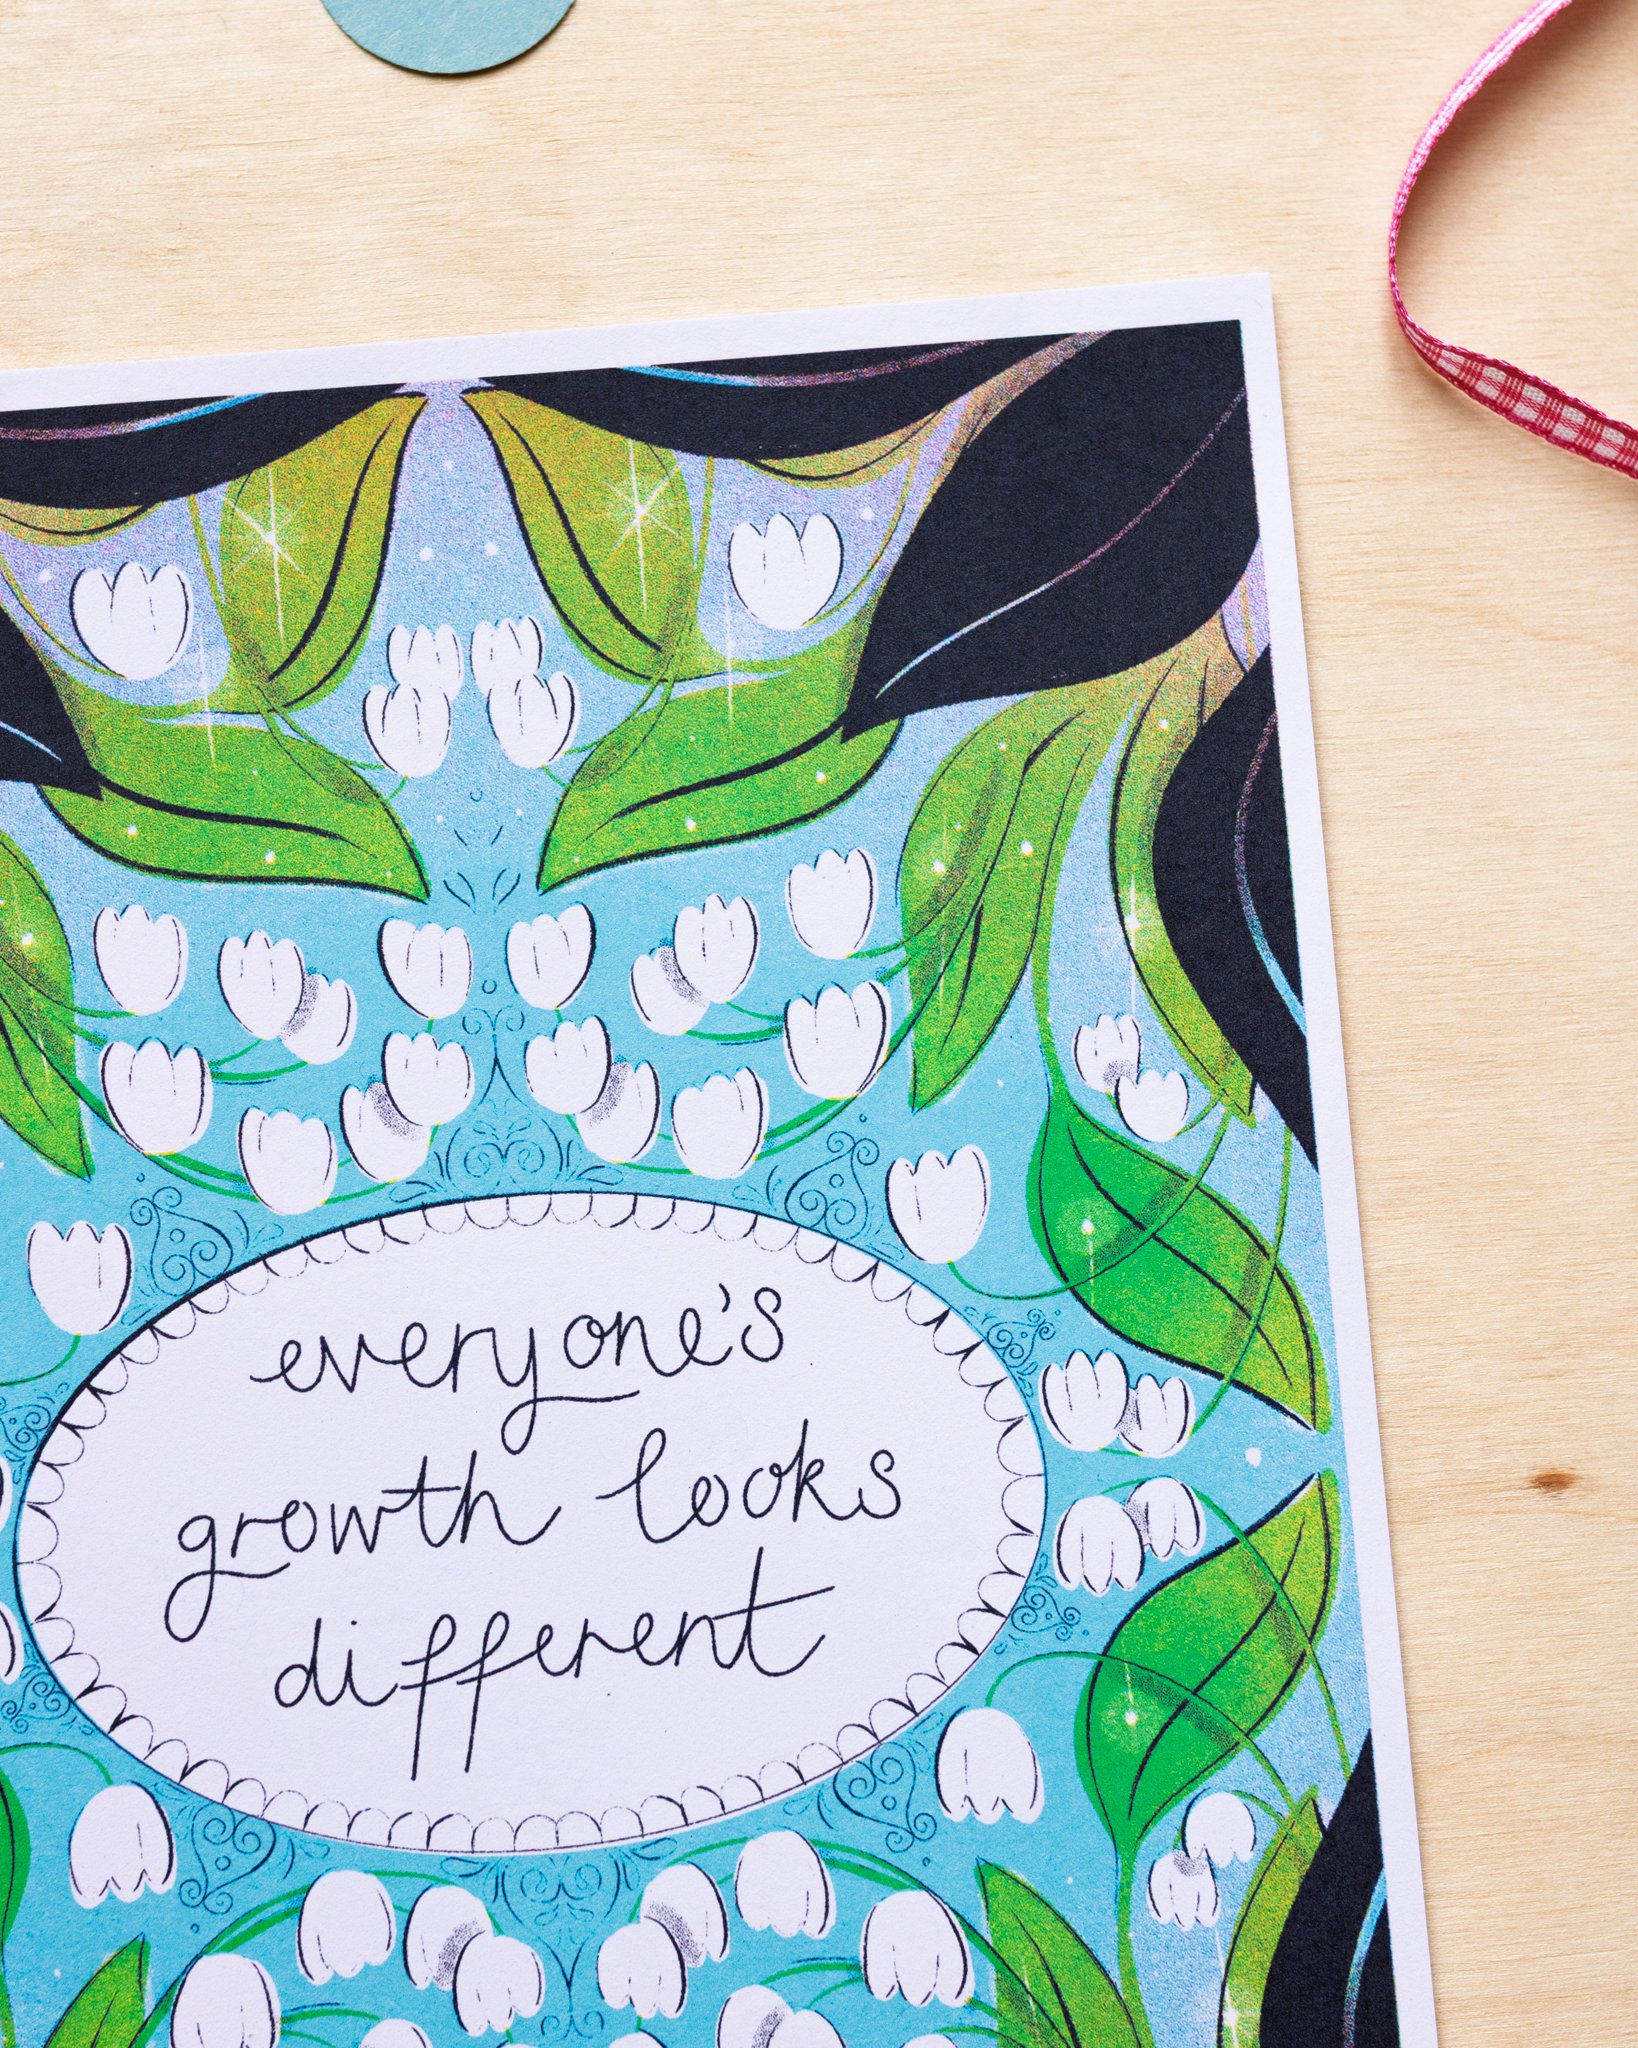 everyone's
growth looks
different